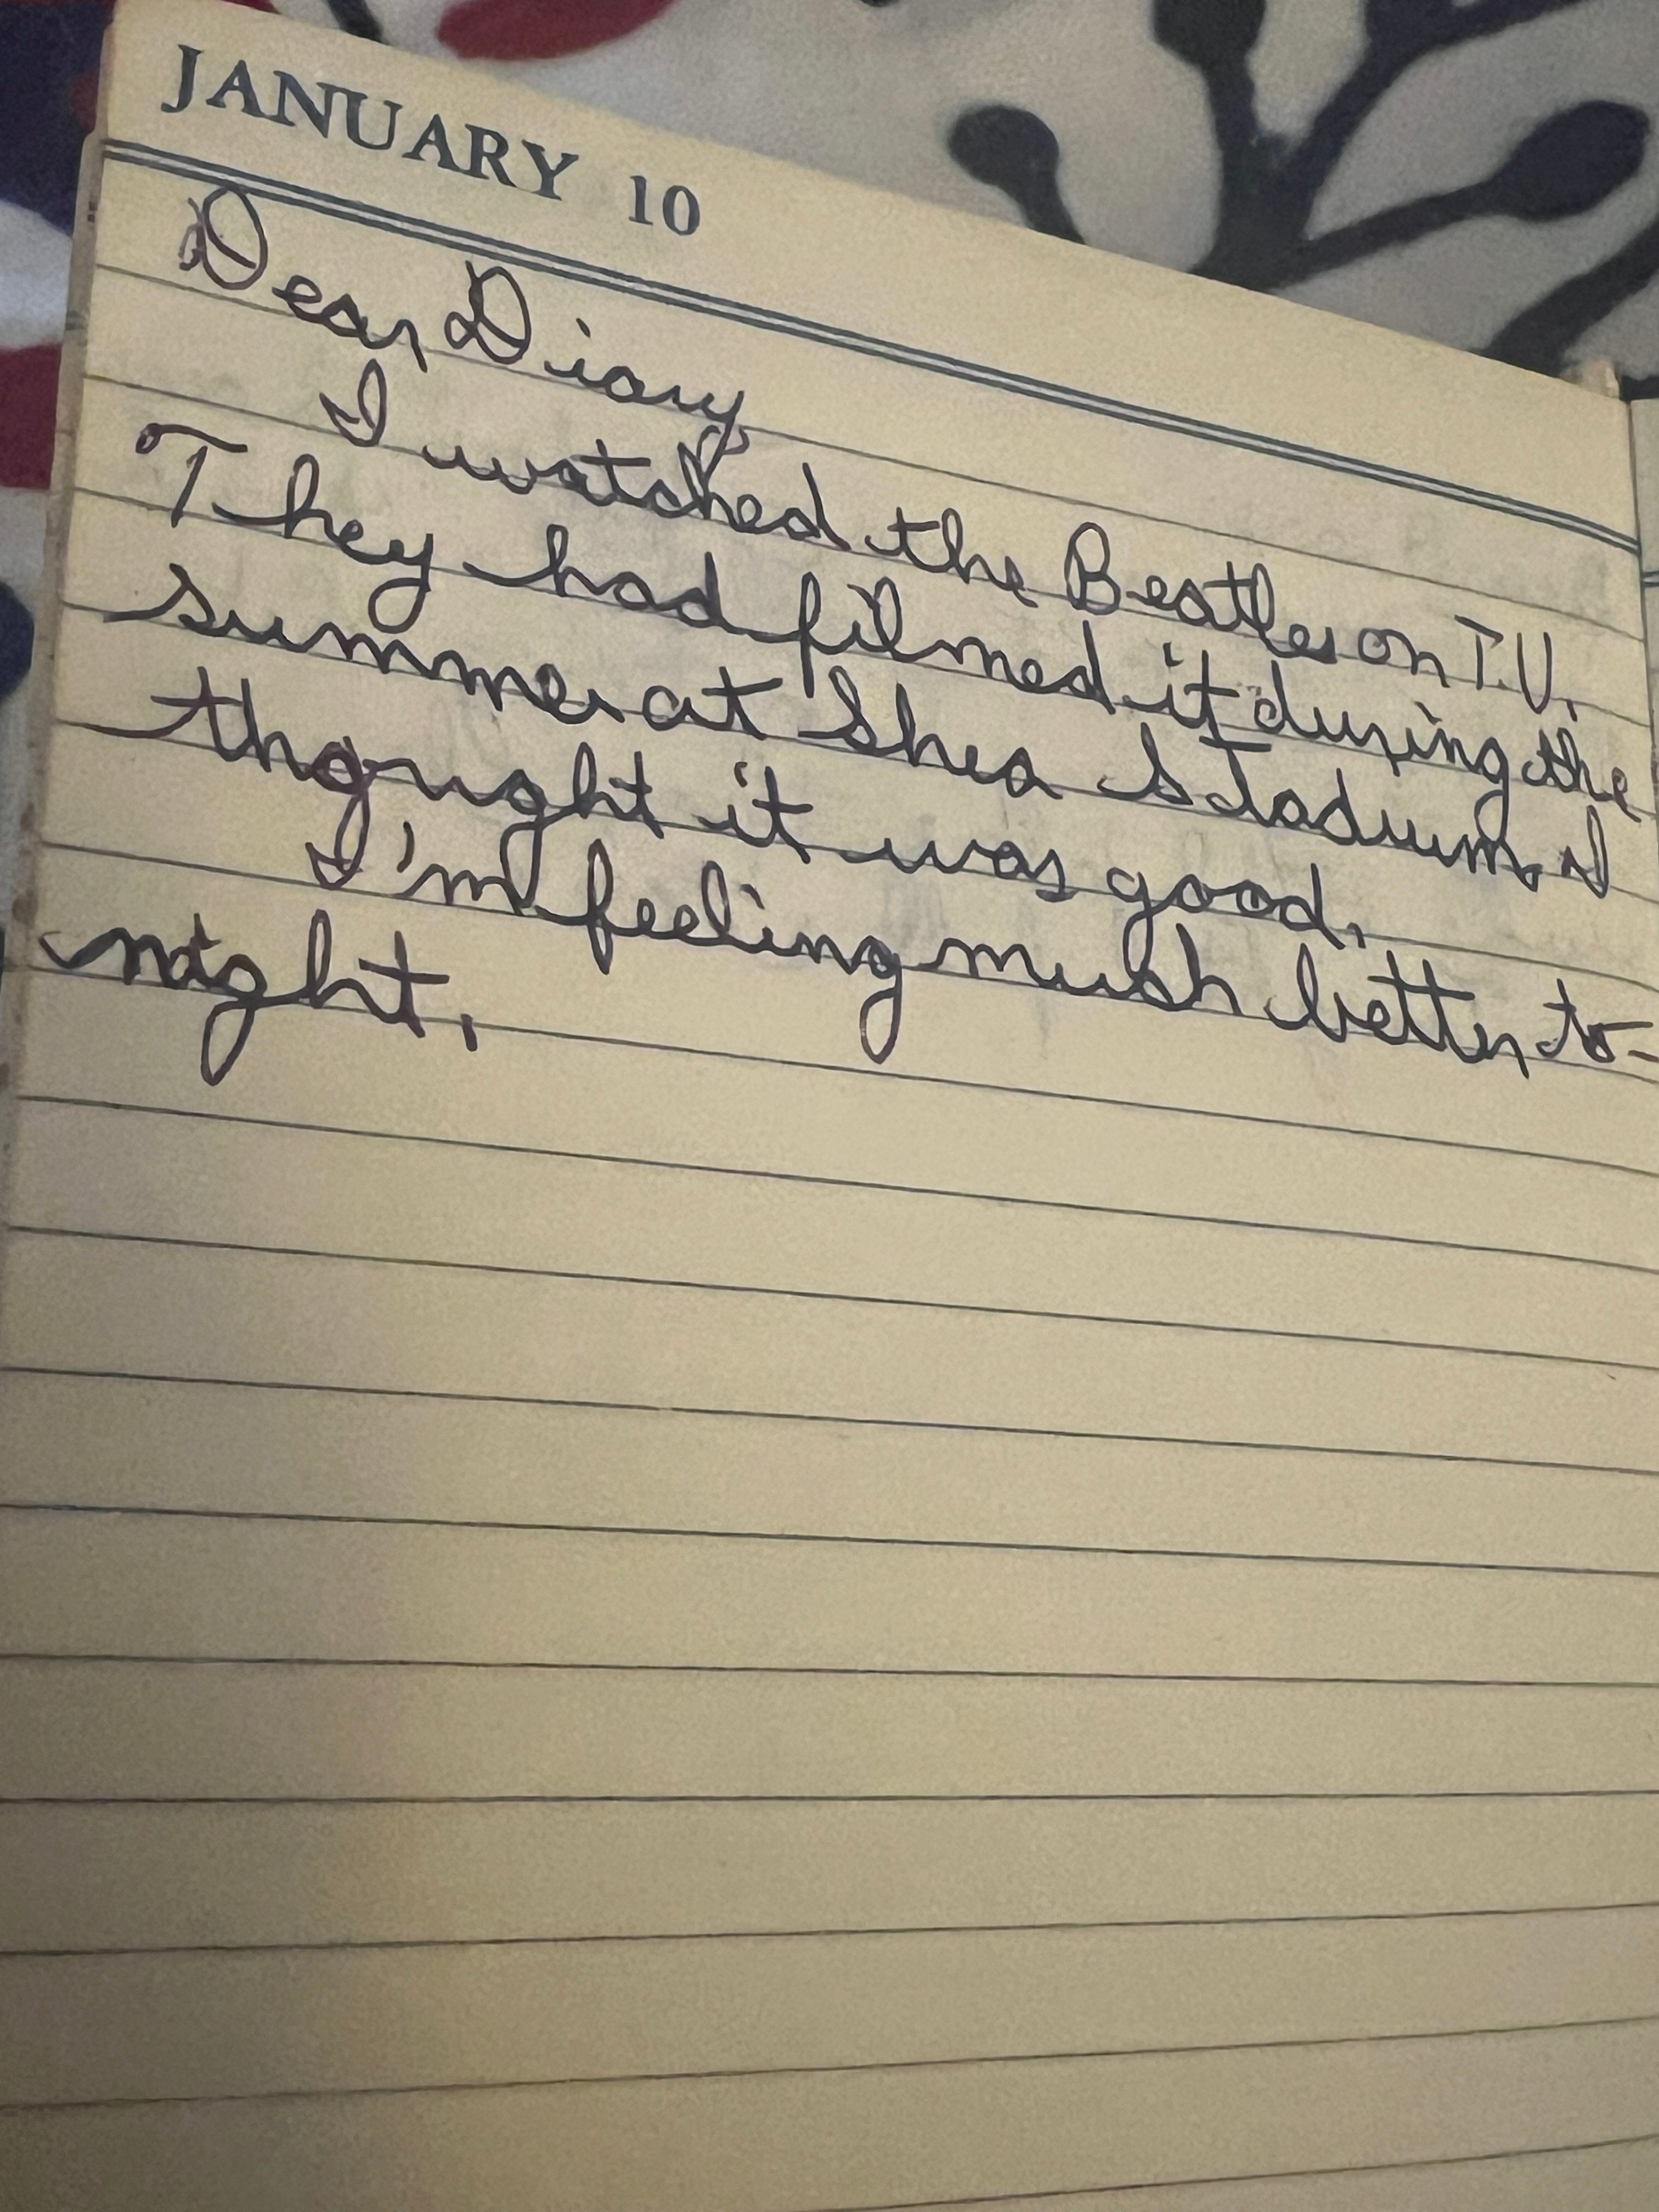 JANUARY 10
Dear Diary,
I watched the Beatles on T.V.
They had filmed it during the
summer at Shea Stadium. I
thought it was good.
I'm feeling much better to-
night.